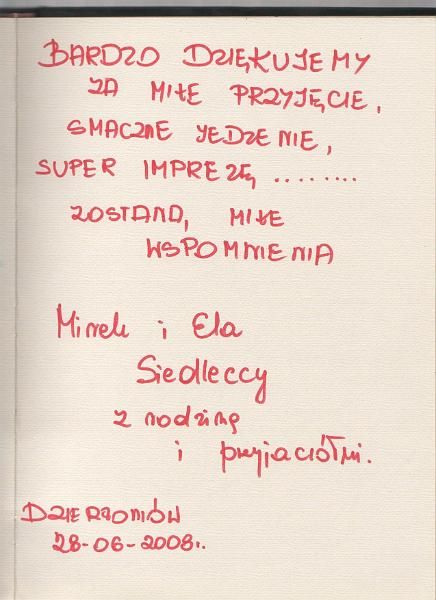 BARDZO DZIĘKUJEMY
ZA MIŁE PRZYJĘCIE,
SMACZNE JEDZENIE,
SUPER IMPREZĘ ........
ZOSTANĄ MIŁE
WSPOMNIENIA
Mirek i Ela
Siedleccy
z rodziną
i przyjaciółmi.
DZIERŻONIÓW
28-06-2008r.